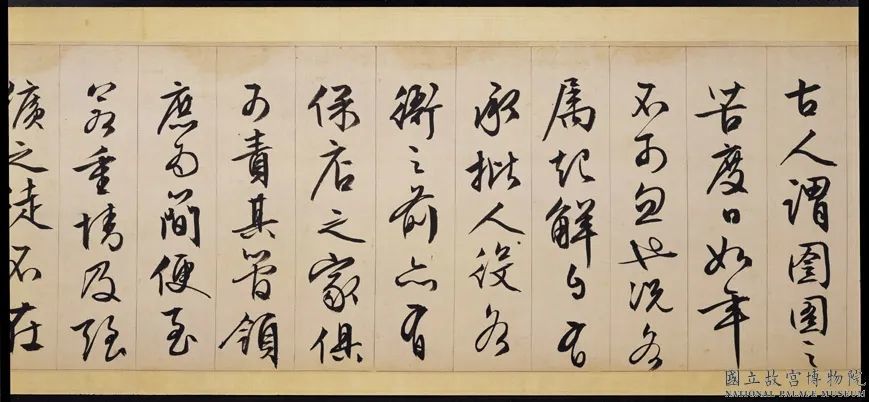 古人謂囹圄之
苦度日如年
不可忽也況各
屬起解自有
承批人役各
衙之前亦有
保店之家俱
可責其管領
庶為簡便至
若重情及強
獷之徒不在
國立故宮博物院
NATIONAL PALACE MUSEUM